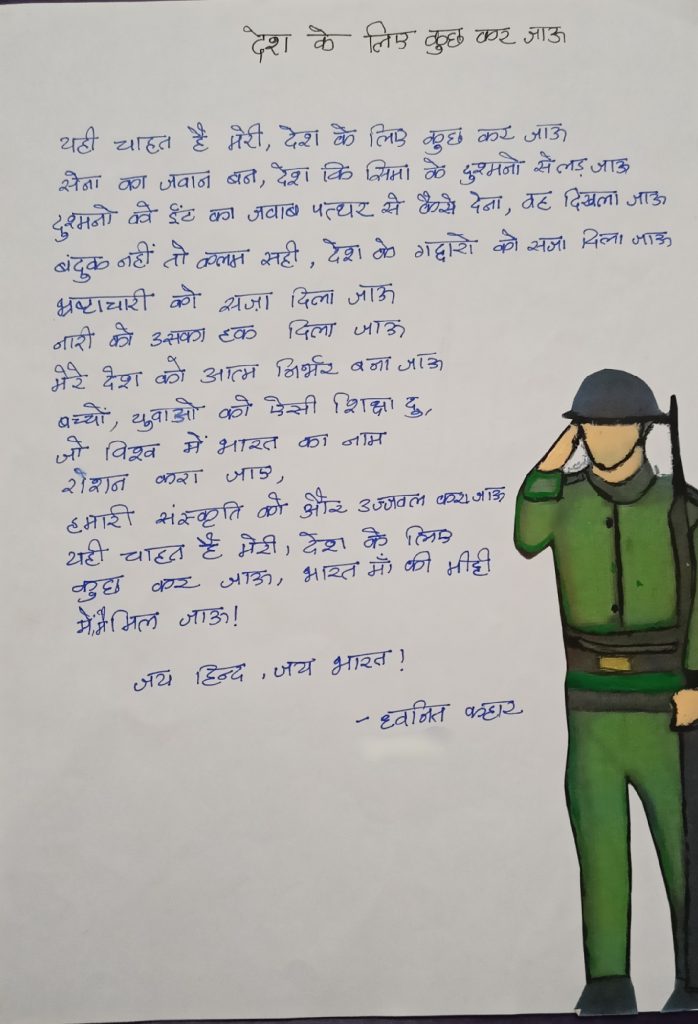 देश के लिए कुछ कर जाऊ
यही चाहत है मेरी, देश के लिए कुछ कर जाऊ
सेना का जवान बन, देश कि सिमा के दुश्मनो से लड़ जाऊ
दुश्मनो को ईंट का जवाब पत्थर से कैसे देना, वह दिखला जाऊ
बंदुक नहीं तो कलम सही, देश के गद्दारो को सजा दिला जाऊ
भ्रष्टाचारी को सज़ा दिला जाऊ
नारी को उसका हक दिला जाऊ
मेरे देश को आत्म निर्भर बना जाऊ
बच्चों, युवाओ को ऐसी शिक्षा दु,
जो विश्व में भारत का नाम
रोशन करा जाए,
हमारी संस्कृति को और उज्जवल करा जाऊ
यही चाहत है मेरी, देश के लिए
कुछ कर जाऊ, भारत माँ की मीट्टी
में,मैं मिल जाऊ!
जय हिन्द, जय भारत!
- ध्वनित कहार